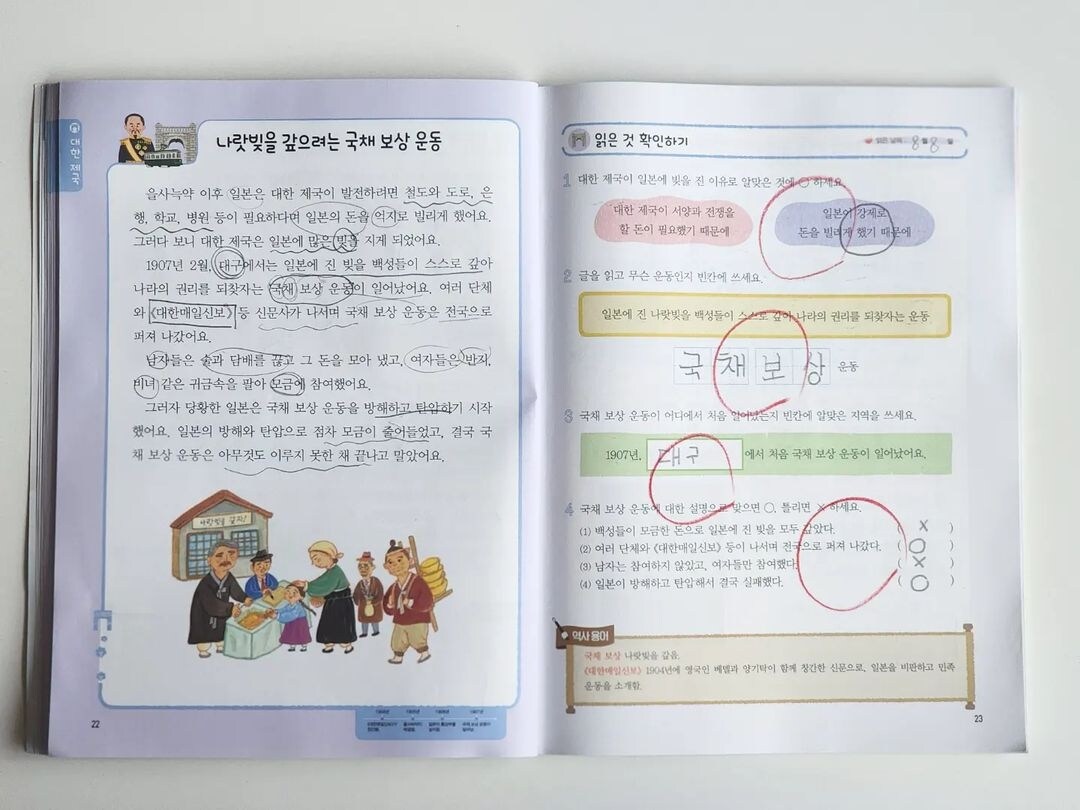 대한 제국
나랏빚을 갚으려는 국채 보상 운동
을사늑약 이후 일본은 대한 제국이 발전하려면 철도와 도로, 은
행, 학교, 병원 등이 필요하다면 일본의 돈을 억지로 빌리게 했어요.
그러다 보니 대한 제국은 일본에 많은 빚을 지게 되었어요.
1907년 2월, 대구에서는 일본에 진 빚을 백성들이 스스로 갚아
나라의 권리를 되찾자는 국채 보상 운동이 일어났어요. 여러 단체
와 《대한매일신보》 등 신문사가 나서며 국채 보상 운동은 전국으로
퍼져 나갔어요.
남자들은 술과 담배를 끊고 그 돈을 모아 냈고, 여자들은 반지,
비녀 같은 귀금속을 팔아 모금에 참여했어요.
그러자 당황한 일본은 국채 보상 운동을 방해하고 탄압하기 시작
했어요. 일본의 방해와 탄압으로 점차 모금이 줄어들었고, 결국 국
채 보상 운동은 아무것도 이루지 못한 채 끝나고 말았어요.
나랏빚을 갚자!
22
읽은 것 확인하기
읽은 날짜 8월 8일
1 대한 제국이 일본에 빚을 진 이유로 알맞은 것에 ○ 하세요.
대한 제국이 서양과 전쟁을
할 돈이 필요했기 때문에
일본이 강제로
돈을 빌리게 했기 때문에
2 글을 읽고 무슨 운동인지 빈칸에 쓰세요.
일본에 진 나랏빚을 백성들이 스스로 갚아 나라의 권리를 되찾자는 운동
국채보상 운동
3 국채 보상 운동이 어디에서 처음 일어났는지 빈칸에 알맞은 지역을 쓰세요.
1907년, 대구 에서 처음 국채 보상 운동이 일어났어요.
4 국채 보상 운동에 대한 설명으로 맞으면 ○, 틀리면 × 하세요.
(1) 백성들이 모금한 돈으로 일본에 진 빚을 모두 갚았다. ( × )
(2) 여러 단체와 《대한매일신보》 등이 나서며 전국으로 퍼져 나갔다. ( ○ )
(3) 남자는 참여하지 않았고, 여자들만 참여했다. ( × )
(4) 일본이 방해하고 탄압해서 결국 실패했다. ( ○ )
역사 용어
국채 보상 나랏빚을 갚음.
《대한매일신보》 1904년에 영국인 베델과 양기탁이 함께 창간한 신문으로, 일본을 비판하고 민족
운동을 소개함.
23